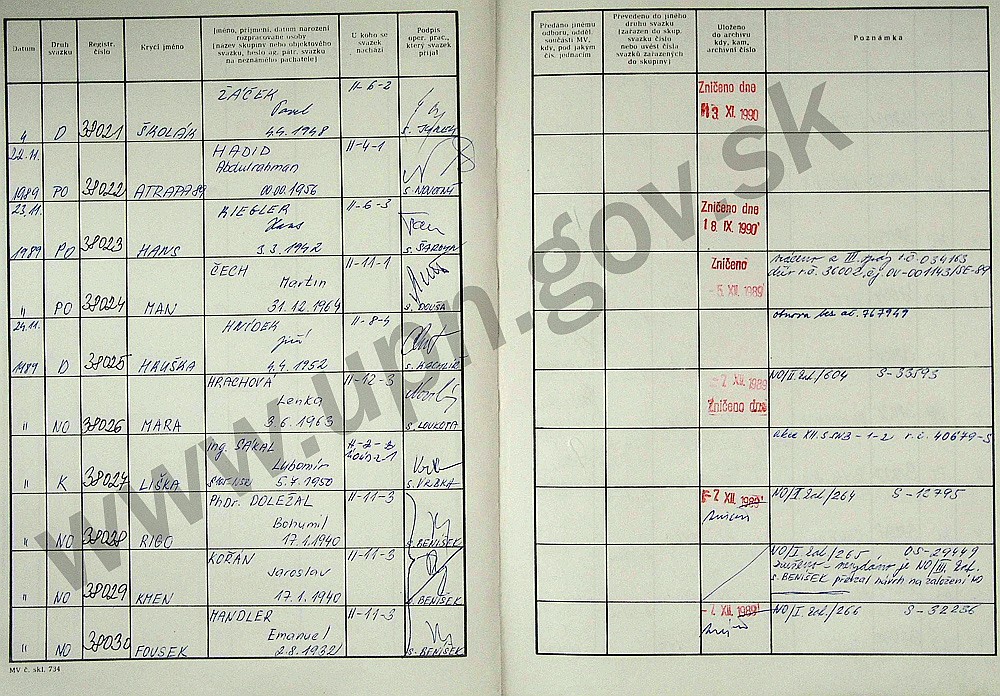 Datum
Druh svazku
Registr. číslo
Krycí jméno
Jméno, příjmení, datum narození
rozpracované osoby
(název skupiny nebo objektového
svazku, heslo ag. pátr. svazku
na neznámého pachatele)
U koho se
svazek
nachází
Podpis
oper. prac.,
který svazek
přijal
Předáno jinému
odboru, odděl.
součásti MV,
kdy, pod jakým
čís. jednacím
Převedeno do jiného
druhu svazku
(zařazen do skup.
svazku číslo
nebo uvést čísla
svazků zařazených
do skupiny)
Uloženo
do archivu
kdy, kam,
archivní číslo
Poznámka
" D 38021 ŠKOLÁK ŽÁČEK Pavel 4.4. 1948 II-6-2
Zničeno dne
13 XI. 1990
22.11. 1989 PO 38022 ATRAPA 89 HADID Abdulrahman 00.00.1956 II-4-1 s. NOVOTNÝ
23.11. 1989 PO 38023 HANS RIEGLER Hans 3.3. 1942 II-6-3
Zničeno dne
18. IX. 1990
" PO 38024 MAN ČECH Martin 31.12.1964 II-11-1 s. DOUŠA
Zničeno
-5. XII. 1989
24.11. 1989 D 38025 HRUŠKA HNÍDEK Jiří 4.4. 1952 II-8-4
obnova bez at. 767949
" NO 38026 MARA HRACHOVÁ Lenka 3.6. 1963 II-12-3 s. LOUKOTA
-7 XII. 1989
Zničeno dne
NO/II. /604 S-33593
" K 38027 LIŠKA Ing. SAKAL Lubomír 5.7.1950 s. VRBKA
akce r.č. 40679-S
" NO 38028 RIGO PhDr. DOLEŽAL Bohumil 17.1.1940 II-11-3 s. BENÍŠEK
-7 XII. 1989
NO/I. /264 S-12795
" NO 38029 KMEN KOŘÁN Jaroslav 17.1.1940 II-11-3 s. BENÍŠEK
NO/I. /265 OS-29449
zničeno - nevydáno je NO/III.
s. BENÍŠEK převzal návrh na založení NO
" NO 38030 FOUSEK MANDLER Emanuel 2.8.1932 II-11-3 s. BENÍŠEK
-7. XII. 1989
NO/I. /266 S-32236
MV č. skl. 734
www.upn.gov.sk